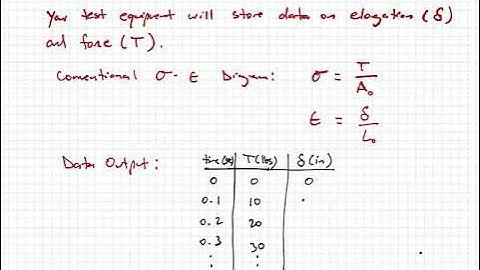 Your test equipment will store data on elogation (δ)
and force (T).
Conventional σ-ε Diagram: σ = T/A₀
ε = δ/L₀
Data Output:
time(sec) T(lbs) δ(in)
0 0 0
0.1 10 .
0.2 20
0.3 30
⋮ ⋮